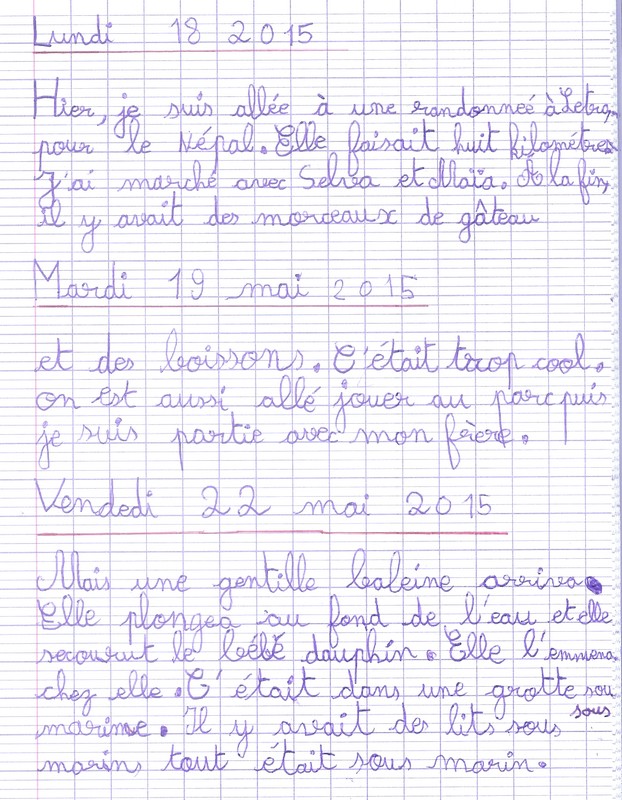 Lundi 18 2015
Hier, je suis allée à une randonneé à Letra,
pour le Népal. Elle faisait huit kilométres
J'ai marché avec Selva et Maïa. A la fin,
il y avait des morceaux de gâteau
Mardi 19 mai 2015
et des boissons. C'était trop cool.
on est aussi allé jouer au parc puis
je suis partie avec mon frère.
Vendedi 22 mai 2015
Mais une gentille baleine arriva
Elle plongea au fond de l'eau et elle
secourut le bébé dauphin. Elle l'emmena
chez elle. C'était dans une grotte sou
marine. Il y avait des lits sous sous
marins tout était sous marin.